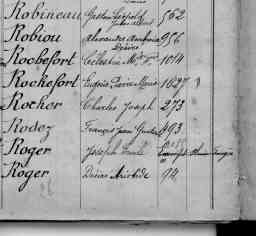 Robineau Gaston Léopold 562
Robiou Alexandre Ambroise 956
Désiré
Rochefort Célestin Mie Fs 1014
Rochefort Eugène Pierre Marie 1027
Rocher Charles Joseph 273
Rodez François Jean 493
Roger Joseph Emile
Roger Désiré Aristide 94